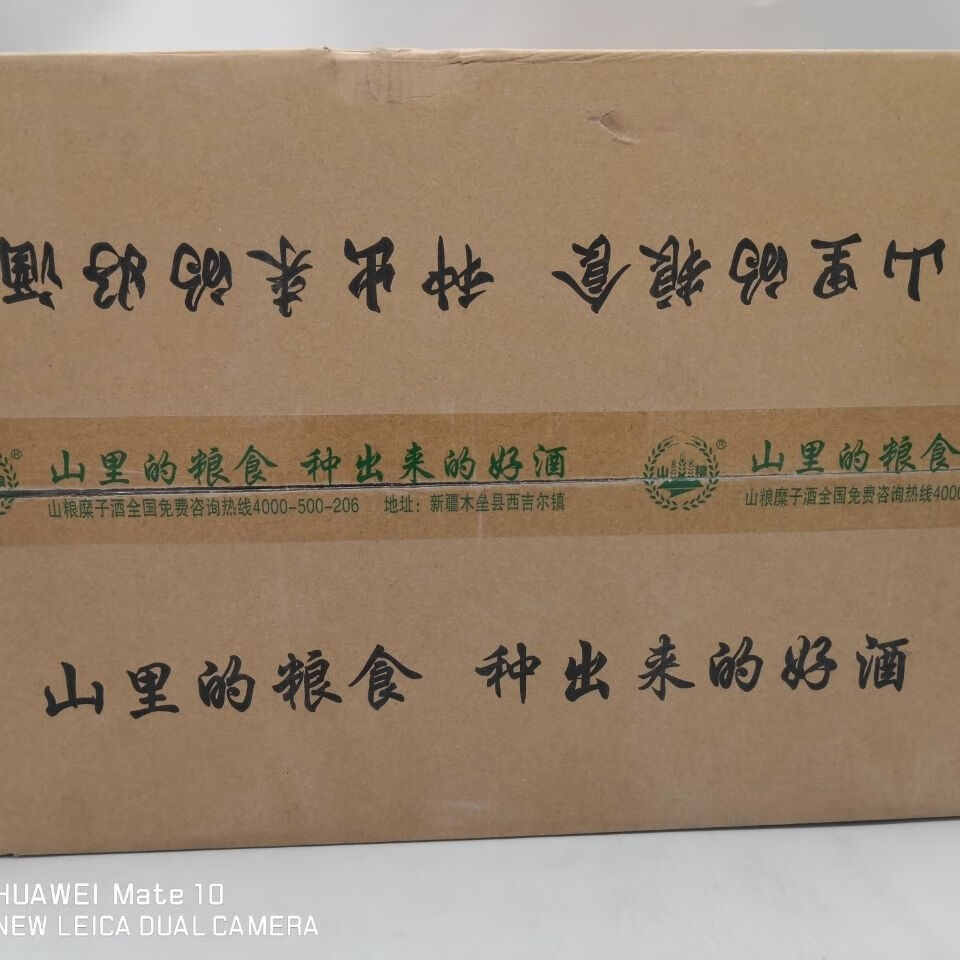 山里的粮食 种出来的好酒
山粮 ® 山里的粮食 种出来的好酒 山粮 ® 山里的粮食
山粮糜子酒全国免费咨询热线4000-500-206 地址：新疆木垒县西吉尔镇 山粮糜子酒全国免费咨询热线4000
山里的粮食 种出来的好酒
HUAWEI Mate 10
NEW LEICA DUAL CAMERA